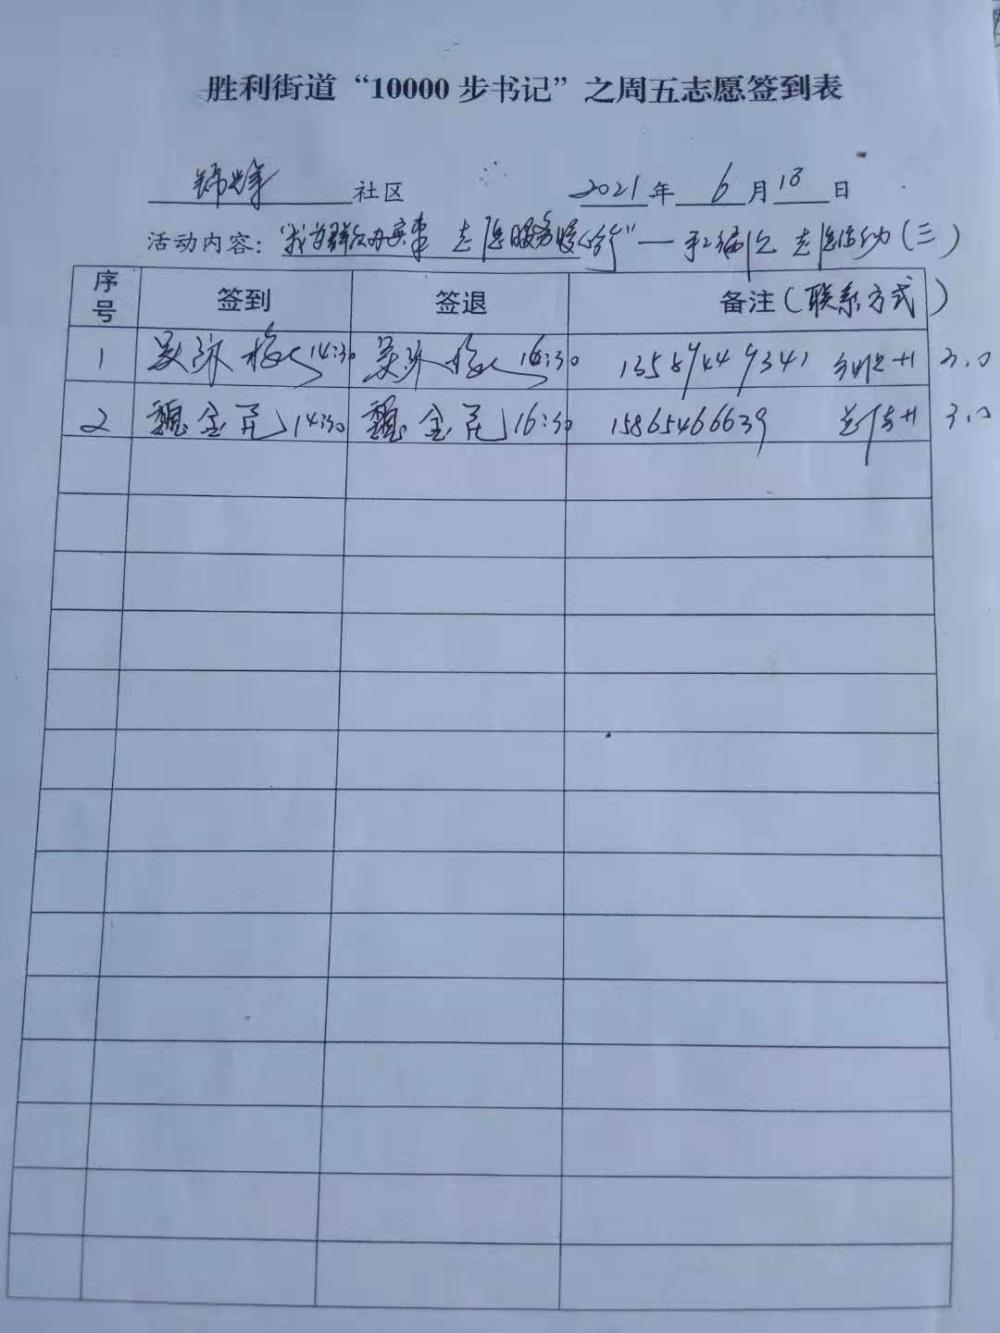 胜利街道“10000步书记”之周五志愿签到表
锦华 社区 2021年 6月18日
活动内容：“我为群众办实事 志愿服务暖心行”— 手工编织 志愿活动(三)
序号 签到 签退 备注(联系方式)
1 14:30 16:30 13589449341 3.0
2 魏金花 14:30 魏金花 16:30 15865466639 3.0